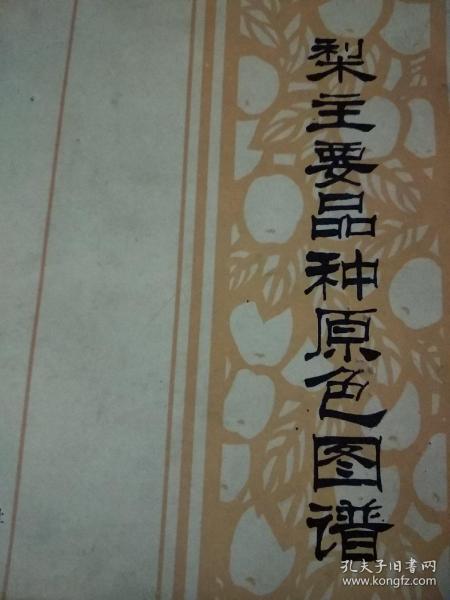 梨主要品种原色图谱
孔夫子旧书网
www.kongfz.com